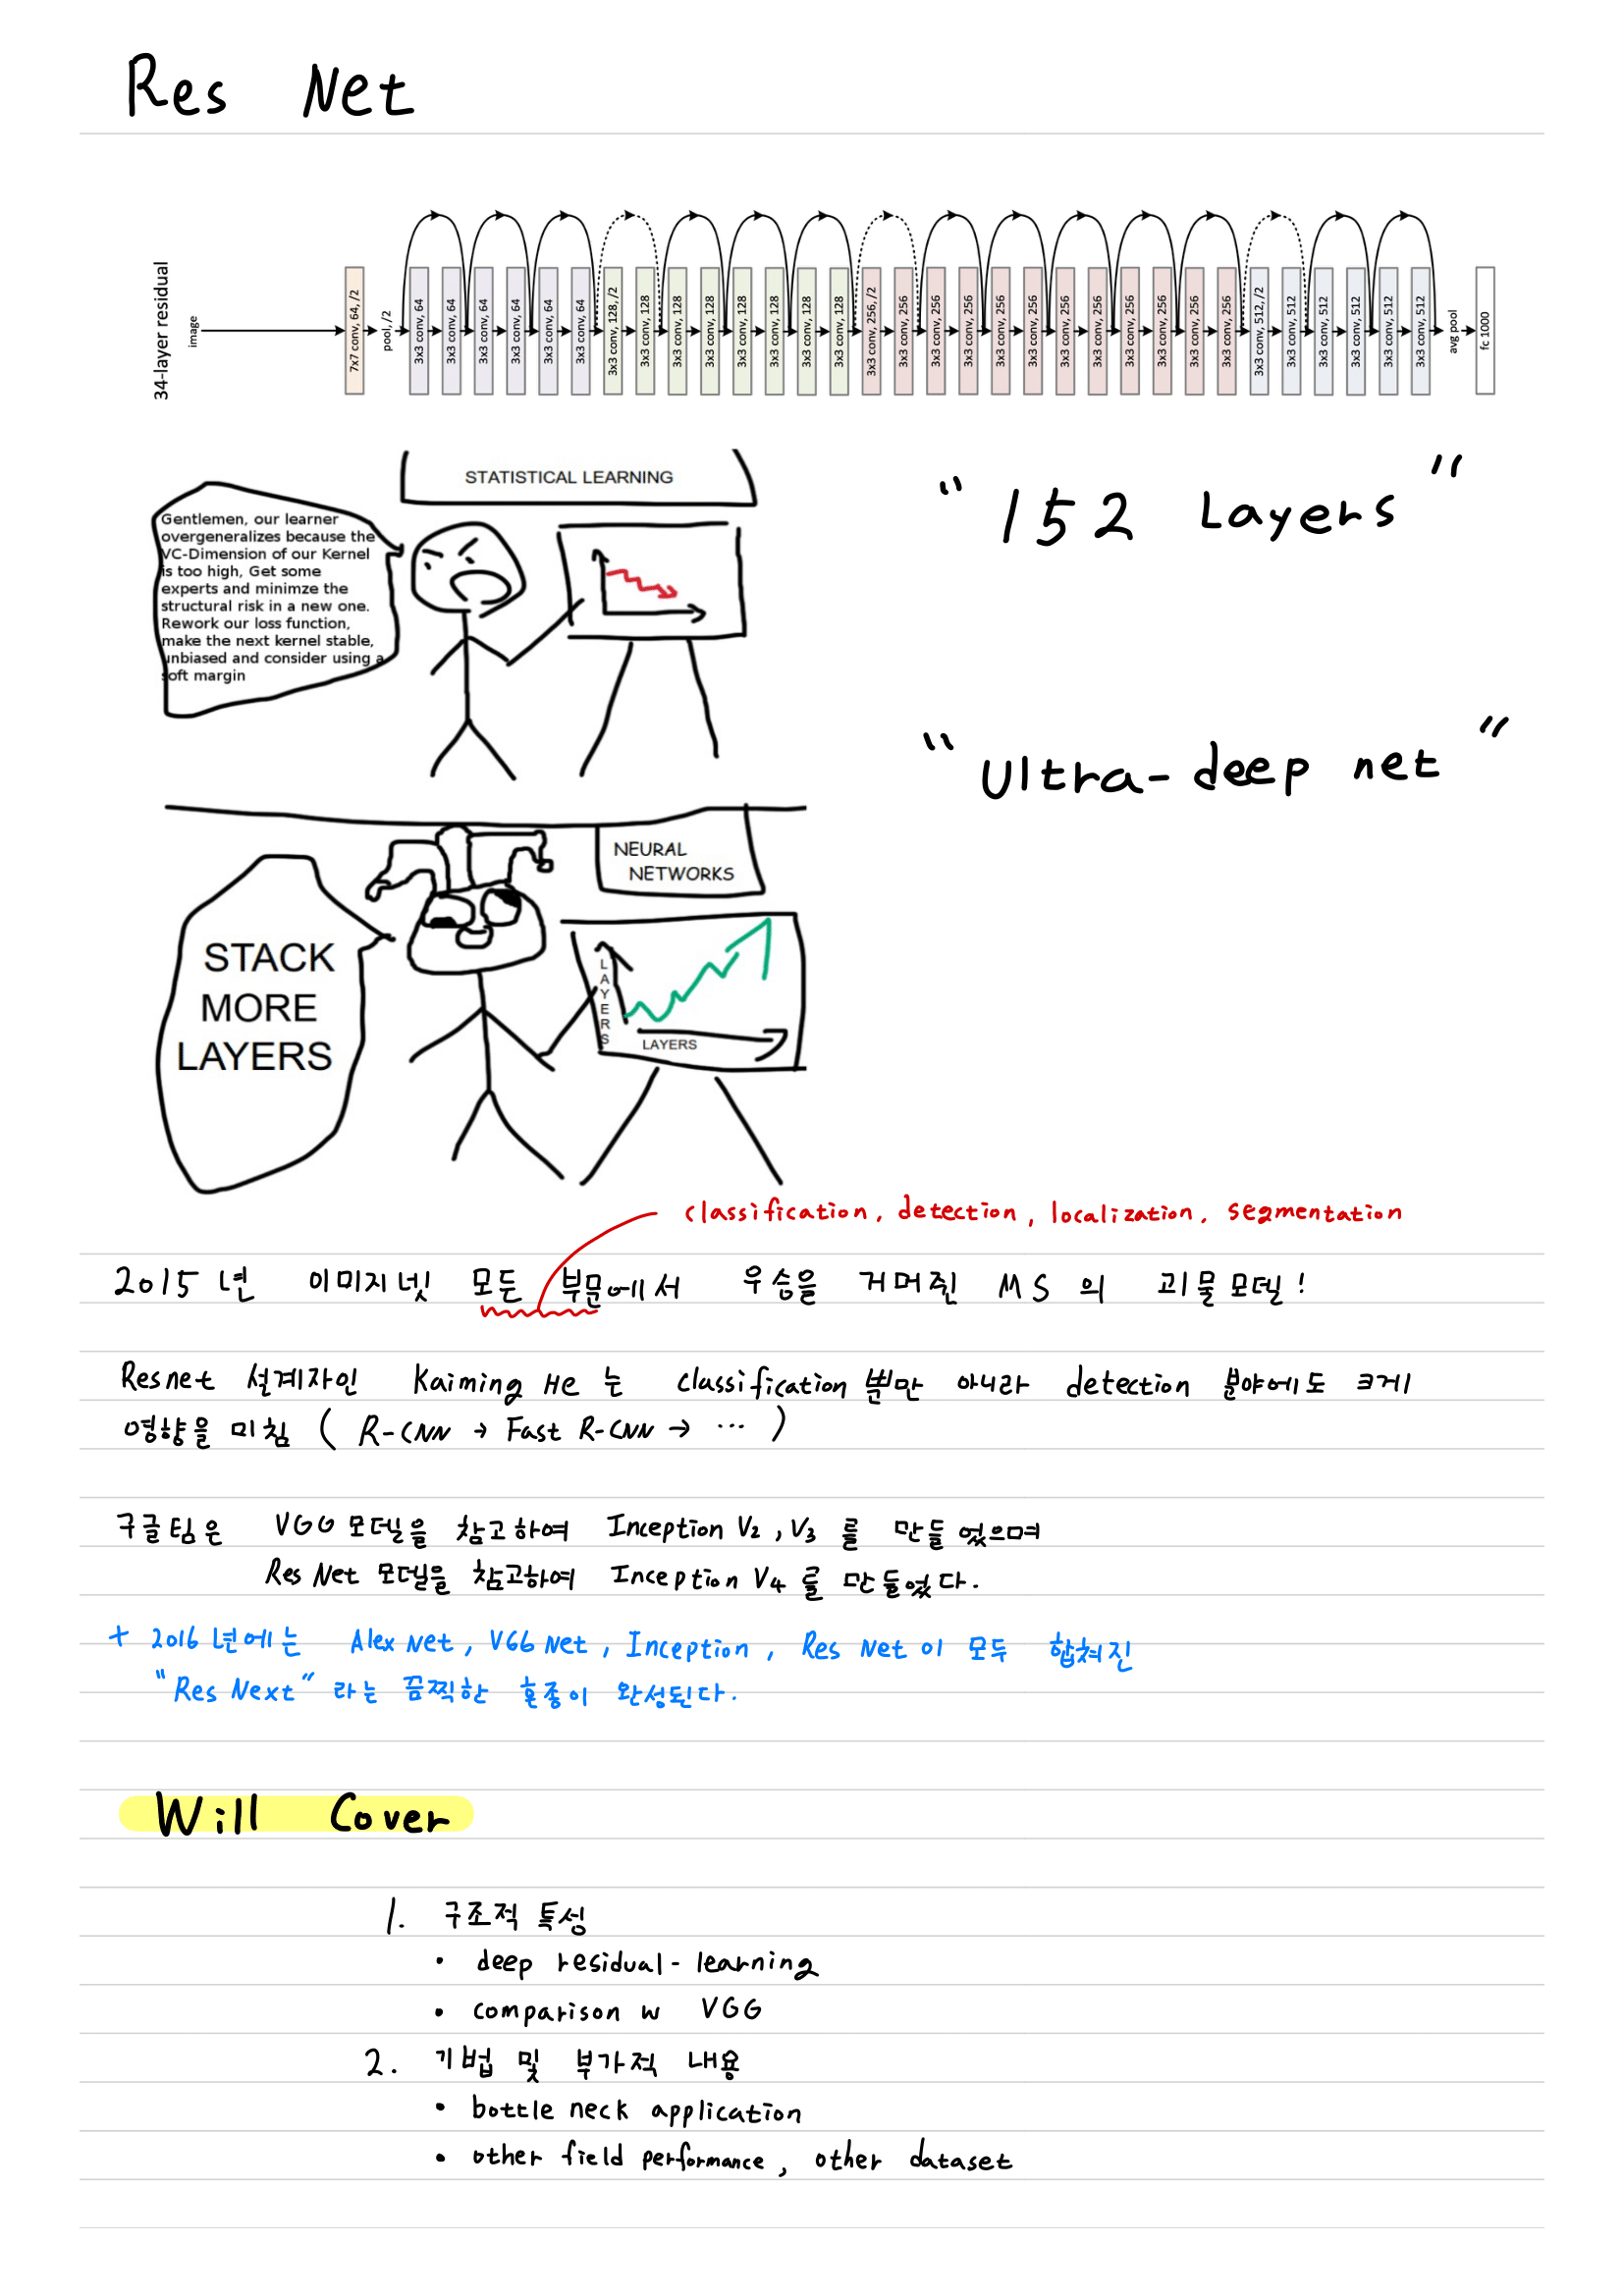 Res Net
34-layer residual
image
7x7 conv, 64, /2
pool, /2
3x3 conv, 64
3x3 conv, 64
3x3 conv, 64
3x3 conv, 64
3x3 conv, 64
3x3 conv, 64
3x3 conv, 128, /2
3x3 conv, 128
3x3 conv, 128
3x3 conv, 128
3x3 conv, 128
3x3 conv, 128
3x3 conv, 128
3x3 conv, 128
3x3 conv, 256, /2
3x3 conv, 256
3x3 conv, 256
3x3 conv, 256
3x3 conv, 256
3x3 conv, 256
3x3 conv, 256
3x3 conv, 256
3x3 conv, 256
3x3 conv, 256
3x3 conv, 256
3x3 conv, 256
3x3 conv, 512, /2
3x3 conv, 512
3x3 conv, 512
3x3 conv, 512
3x3 conv, 512
3x3 conv, 512
avg pool
fc 1000
STATISTICAL LEARNING
Gentlemen, our learner
overgeneralizes because the
VC-Dimension of our Kernel
is too high, Get some
experts and minimze the
structural risk in a new one.
Rework our loss function,
make the next kernel stable,
unbiased and consider using a
soft margin
"152 Layers"
"Ultra-deep net"
NEURAL
NETWORKS
STACK
MORE
LAYERS
LAYERS
LAYERS
classification, detection, localization, segmentation
2015년 이미지넷 모든 부문에서 우승을 거머쥔 MS의 괴물모델!
Resnet 설계자인 Kaiming He는 classification 뿐만 아니라 detection 분야에도 크게
영향을 미침 (R-CNN → Fast R-CNN → ...)
구글팀은 VGG 모델을 참고하여 Inception V2, V3를 만들었으며
Res Net 모델을 참고하여 Inception V4를 만들었다.
+ 2016년에는 Alex Net, VGG Net, Inception, Res Net이 모두 합쳐진
"Res Next"라는 끔찍한 혼종이 완성된다.
Will Cover
1. 구조적 특성
• deep residual-learning
• comparison w VGG
2. 기법 및 부가적 내용
• bottle neck application
• other field performance, other dataset